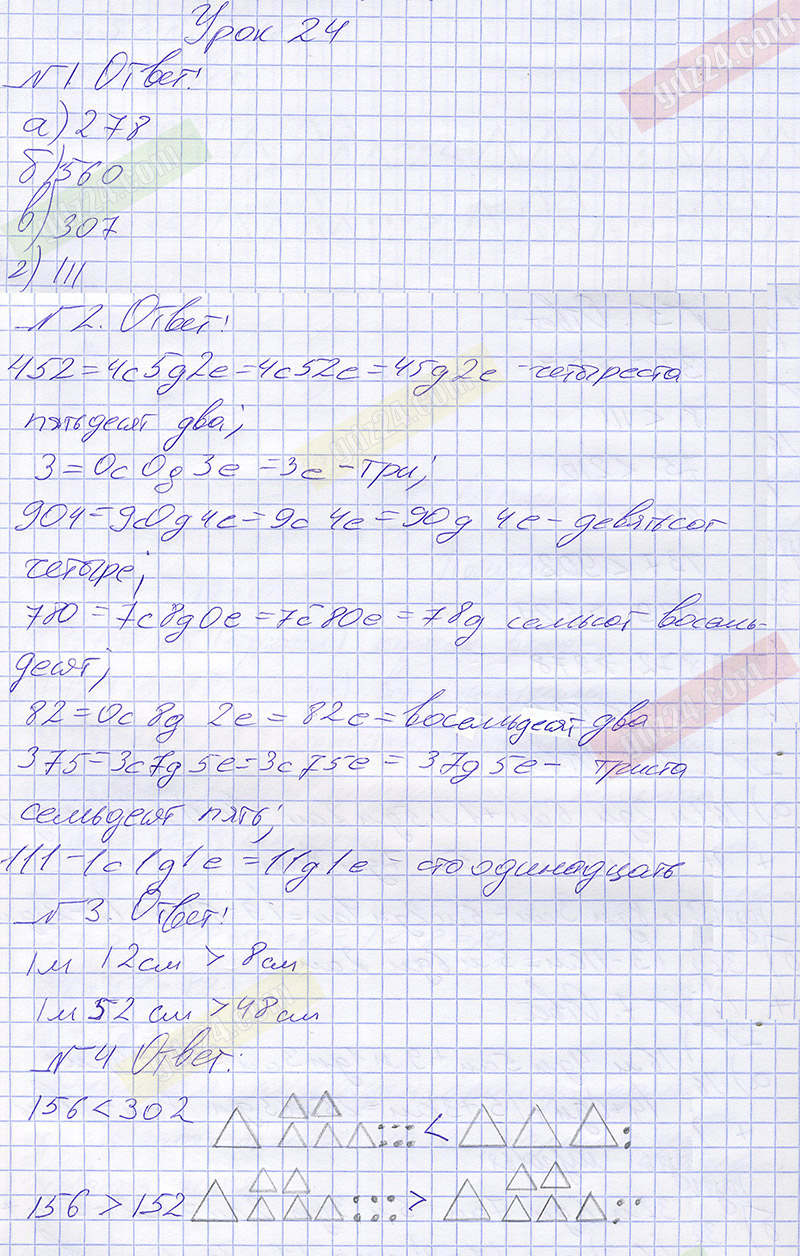 Урок 24
№1 Ответ:
а) 278
б) 560
в) 307
г) 111
№2. Ответ:
452=4с5д2е=4с52е=45д2е -четыреста
пятьдесят два;
3=0с0д3е=3е-три;
904=9с0д4е=9с 4е=90д 4е-девятьсот
четыре;
780=7с8д0е=7с80е=78д семьсот восемь-
десят;
82=0с8д 2е=82е=восемьдесят два
375=3с7д5е=3с75е=37д5е- триста
семьдесят пять;
111-1с1д1е=11д1е-сто одинадцать
№3. Ответ:
1м 12см > 8см
1м 52 см > 48см
№4 Ответ:
156 < 302 <
156 > 152 >
ydz24.com
ydz24.com
ydz24.com
ydz24.com
ydz24.com